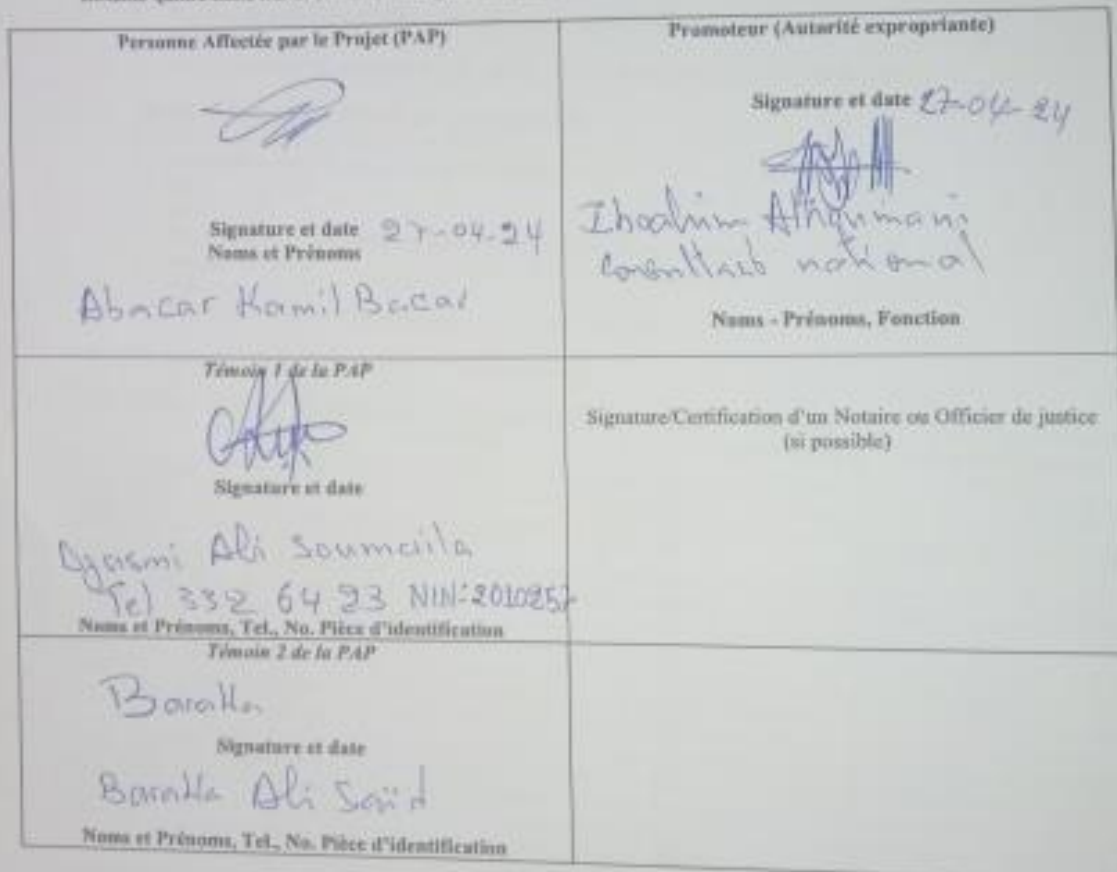 Personne Affectée par le Projet (PAP)
Signature et date 27-04-24
Noms et Prénoms
Abacar Kamil Bacar
Promoteur (Autorité expropriante)
Signature et date 27-04-24
Ibrahim Athoumani
Consultant national
Noms - Prénoms, Fonction
Témoin 1 de la PAP
Signature et date
Ali Soumaila
Tel 332 64 23 NIN:201025
Noms et Prénoms, Tel., No. Pièce d'identification
Signature/Certification d'un Notaire ou Officier de justice
(si possible)
Témoin 2 de la PAP
Signature et date
Ali Saïd
Noms et Prénoms, Tel., No. Pièce d'identification